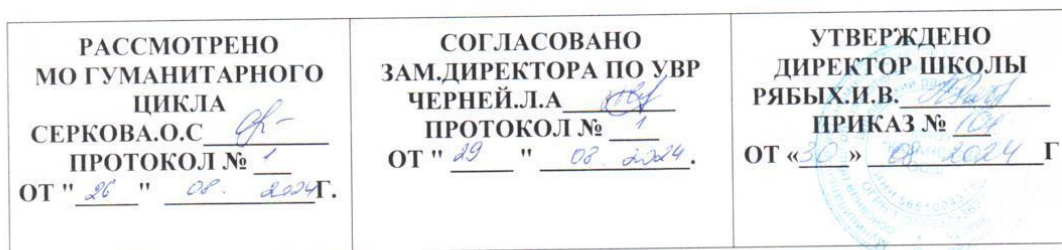 РАССМОТРЕНО
МО ГУМАНИТАРНОГО
ЦИКЛА
СЕРКОВА.О.С
ПРОТОКОЛ № 1
ОТ " 26 " 08. 2024Г.
СОГЛАСОВАНО
ЗАМ.ДИРЕКТОРА ПО УВР
ЧЕРНЕЙ.Л.А
ПРОТОКОЛ № 1
ОТ " 29 " 08. 2024.
УТВЕРЖДЕНО
ДИРЕКТОР ШКОЛЫ
РЯБЫХ.И.В.
ПРИКАЗ №
ОТ «30» 08 2024 Г